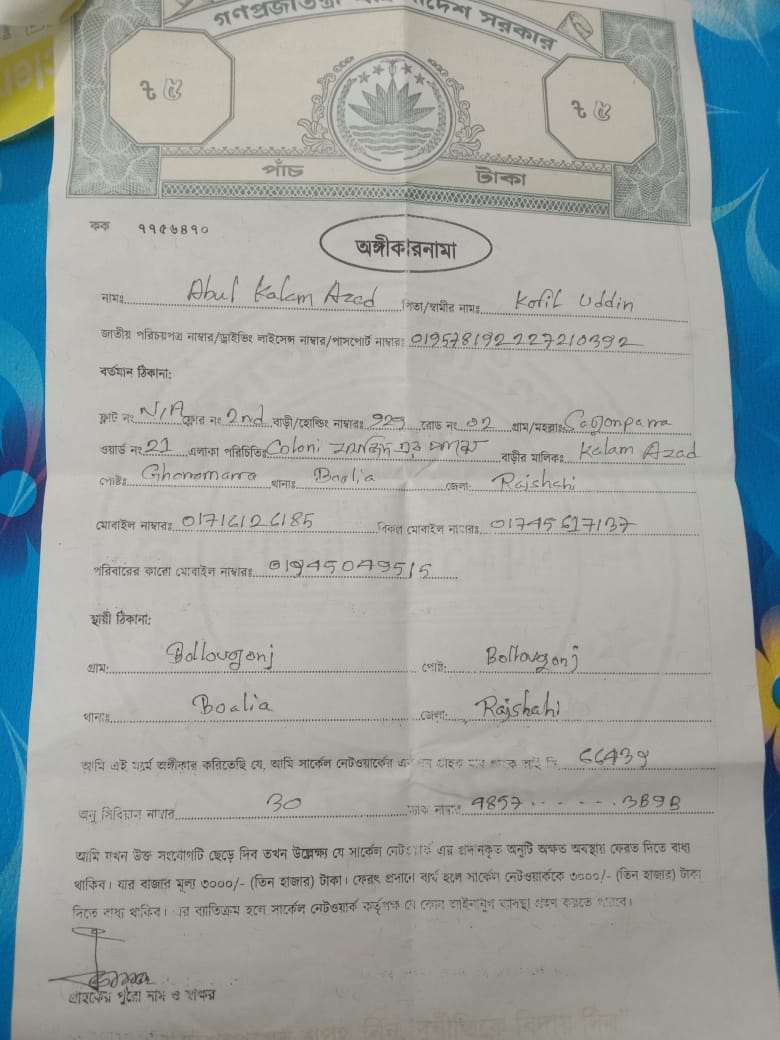 গণপ্রজাতন্ত্রী বাংলাদেশ সরকার
৳ ৫ ৳ ৫
পাঁচ টাকা
কক ৭৭৫৬৪৭০
অঙ্গীকারনামা
নামঃ Abul Kalam Azad পিতা/স্বামীর নামঃ Kofil Uddin
জাতীয় পরিচয়পত্র নাম্বার/ড্রাইভিং লাইসেন্স নাম্বার/পাসপোর্ট নাম্বারঃ 019578192227210392
বর্তমান ঠিকানা:
ফ্লাট নং N/A ফ্লোর নং 2nd বাড়ী/হোল্ডিং নাম্বারঃ রোড নং 02 গ্রাম/মহল্লাঃ Sagonparra
ওয়ার্ড নং 21 এলাকা পরিচিতিঃ Coloni বাড়ীর মালিকঃ Kalam Azad
পোষ্টঃ Ghoramarra থানাঃ Boalia জেলা: Rajshahi
মোবাইল নাম্বারঃ 01716126185 বিকল্প মোবাইল নাম্বারঃ 01745617137
পরিবারের কারো মোবাইল নাম্বারঃ 01945049515
স্থায়ী ঠিকানা:
গ্রাম: Bollovgonj পোষ্ট: Bollovgonj
থানাঃ Boalia জেলা: Rajshahi
আমি এই মর্মে অঙ্গীকার করিতেছি যে, আমি সার্কেল নেটওয়ার্কের একজন গ্রাহক যার গ্রাহক আই ডি
অনু সিরিয়াল নাম্বার 30 ম্যাক নাম্বার
আমি যখন উক্ত সংযোগটি ছেড়ে দিব তখন উল্লেক্ষ্য যে সার্কেল নেটওয়ার্ক এর প্রদানকৃত অনুটি অক্ষত অবস্থায় ফেরত দিতে বাধ্য
থাকিব। যার বাজার মূল্য ৩০০০/- (তিন হাজার) টাকা। ফেরৎ প্রদানে ব্যর্থ হলে সার্কেল নেটওয়ার্ককে ৩০০০/- (তিন হাজার) টাকা
দিতে বাধ্য থাকিব। এর ব্যতিক্রম হলে সার্কেল নেটওয়ার্ক কর্তৃপক্ষ যে কোন আইনানুগ ব্যবস্থা গ্রহন করতে পারবে।
গ্রাহকের পুরো নাম ও স্বাক্ষর